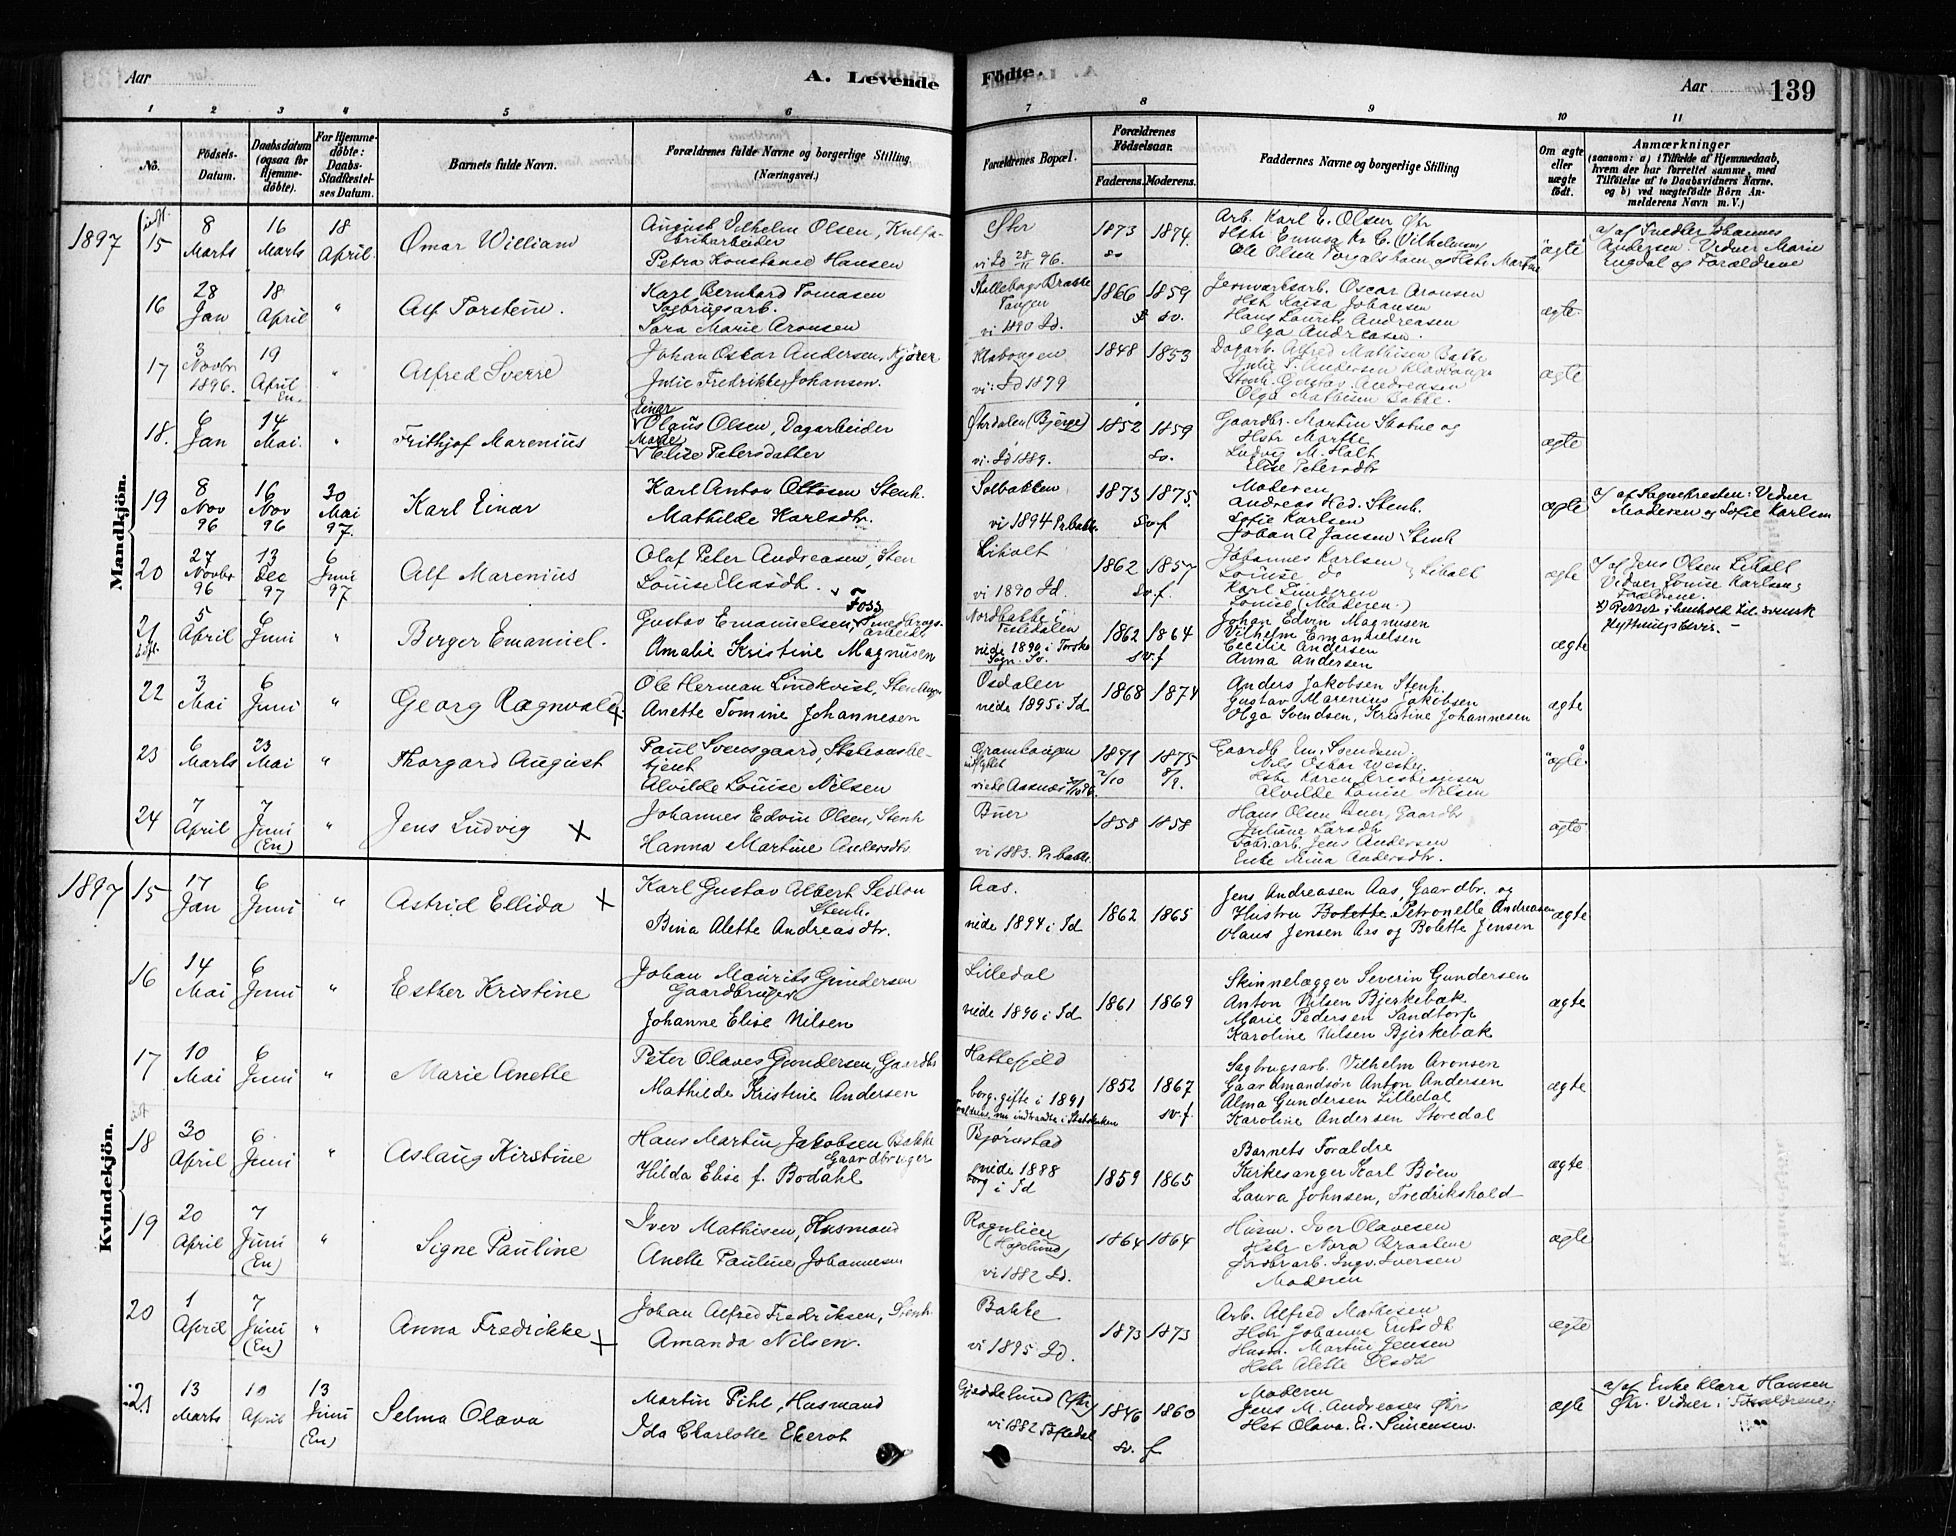 Aar
A. Levende
Födte.
Aar
139
1 2 3 4 5 6 7 8 9 10 11
No.
Födsels-Datum.
Daabsdatum (ogsaa for Hjemmedöbte).
For Hjemmedöbte: Daabs-Stadfæstelses Datum.
Barnets fulde Navn.
Forældrenes fulde Navne og borgerlige Stilling (Næringsvei.)
Forældrenes Bopæl.
Forældrenes Födselsaar.
Faderens. Moderens.
Faddernes Navne og borgerlige Stilling
Om ægte eller uægte födt.
Anmærkninger
(saasom: a) i Tilfælde af Hjemmedaab, hvem der har forrettet samme, med Tilföielse af to Daabsvidners Navne, og b) ved uægtefödte Börn Anmelderens Navn m. V.)
Mandkjön.
1897
15 8 Marts 16 Marts 18 April Omar William
August Vilhelm Olsen,
Petra Konstance Hansen
vi Id 25/11 96.
1873 1874
Arb. Karl E. Olsen
Ole Olsen
ægte
Andersen Vidner Marie
Engdal og Forældrene
16 28 Jan 18 April " Alf Torstein.
Karl Bernhard Tomasen
Sagbrugsarb.
Sara Marie Aronsen
Tangen
vi 1890 Id.
1866 1859 sv.
Jernværksarb. Oscar Aronsen
Hstr Kaisa Johansen
Hans Laurits Andreasen
Olga Andreasen.
ægte
17 3 Novbr 1896. 19 April En. " Alfred Sverre
Johan Oskar Andersen, Kjører
Julie Fredrikke Johansen.
vi: Id 1879
1848 1853
Dagarb. Alfred Mathisen Bakke
Julie F. Andersen
Stenh. Gustav Andreasen
Olga Mathisen Bakke.
ægte
18. 6 Jan 14 Mai. " Frithjof Marenius
Einar
Olaus Olsen, Dagarbeider
Elise Petersdatter
(Bjerge)
vi. Id 1889.
1852 1859 Sv.
Gaardbr. Martin Skotne og
Hstr Marthe
Ludvig M. Holt
Elise Petersdtr
ægte
19 8 Nov 96 16 Nov 96 30 Mai 97. Karl Einar
Karl Anton Ottosen Stenh.
Mathilde Karlsdtr.
Solbakken
vi 1894
1873 1875 svf
Moderen
Andreas Hed. Stenh.
Sofie Karlsen
Johan A Jansen Stenh
ægte
a/ af Sognepresten: Vidner
Moderen og Sofie Karlsen
20 27 Novbr 96 13 Dec 97 6 Juni 97 Alf Marenius
Olaf Peter Andreasen, Sten
Liholt
vi 1890 Id.
1862 1857 sv.f.
Johannes Karlsen
Louise do Liholt
Louise (Moderen.)
ægte
a/ af Jens Olsen Liholt
Vidner Louise Karlsen,
Forældrene.
21 5 April 6 Juni " Birger Emanuel.
Foss
Gustav Emanuelsen,
Amalie Kristine Magnusen
Nordbakke i
viede 1890 i Torskog
Sogn. Sv.
1862 1864 sv.f
Johan Edvin Magnusen
Vilhelm Emanuelsen
Cecilie Andersen
Anna Andersen
ægte
22 3 Mai 6 Juni " Georg Ragnvald x
Ole Herman Lindkvist,
Anette Tomine Johannesen
Osdalen
viede 1895 i Id
1868 1874
Anders Jakobsen Stenh.
Gustav Marenius Jakobsen
Olga Svendsen, Kristine Johannesen
ægte
23 6 Marts 23 Mai " Thorgard August
Paul Svensgaard, Stationsbe-
tjent
Alvilde Louise Nilsen
1871 1875
Gaardb Em. Svendsen.
Nils Oskar
Hstr Karen Kristiansen
Alvilde Louise Nilsen
ægte
24 7 April 7 Juni (En) " Jens Ludvig x
Johannes Edvin Olsen, Stenh
Hanna Martine Andersdtr
Buer
vi 1883.
1858 1858
Hans Olsen Buer, Gaardbr
Juliane Larsdtr
Jens Andersen
Enke Mina Andersdtr.
ægte
Kvindekjön.
1897
15 17 Jan 6 Juni " Astrid Ellida x
Karl Gustav Albert Seslon
Stenh.
Bina Alette Andreasdtr.
Aas.
viede 1894 i Id
1862 1865
Jens Andreasen Aas, Gaardbr. og
Hustru Bolette Petronelle Andreasen
Olaus Jensen Aas og Bolette Jensen
ægte
16 14 Mai 6 Juni " Esther Kristine
Johan Maurits Gundersen
Gaardbruger
Johanne Elise Nilsen
Lilledal
viede 1890 i Id
1861 1869
Skinnelægger Severin Gundersen
Anton Nilsen Bjerkebæk
Marie Pedersen Sandtorp
Karoline Nilsen Bjerkebæk
ægte
17 10 Mai 6 Juni " Marie Anette
Peter Olaves Gundersen, Gaardbr
Mathilde Kristine Andersen
Hattefjeld
borg. gifte i 1891
1852 1867 sv.f.
Sagbrugsarb. Vilhelm Aronsen
Gaardmandsøn Anton Andersen
Alma Gundersen Lilledal
Karoline Andersen Storedal
ægte
18 30 April 6 Juni " Aslaug Kirstine
Hans Martin Jakobsen Bakke
Gaardbruger
Hilda Elise f. Bodahl
Bjørnstad
viede 1888
borg i Id
1859 1865
Barnets Forældre
Kirkesanger Karl Böen
Laura Johnsen, Fredrikshald
ægte
19 20 April 7 Juni (En) " Signe Pauline
Iver Mathisen, Husmand
Anette Pauline Johannesen
vi 1882 Id.
1864 1864
Husm. Iver Olavesen
Hstr Nora Braatene
Ingv. Iversen
Moderen
ægte
20 1 April 7 Juni (En) " Anna Fredrikke x
Johan Alfred Fredriksen, Stenh.
Amanda Nilsen.
Bakke
vi 1895 Id.
1873 1873
Arb. Alfred Mathisen
Hstr Johanne
Husm. Martin Jensen
Hstr Alette Olsdtr
ægte
21 13 Marts 10 April 13 Juni (En) Selma Olava
Martin Pihl, Husmand
Ida Charlotte Ekerot
vi 1882
1846 1860 sv. f.
Moderen
Jens M. Andreasen
Hstr Olava E. Simensen.
ægte
a/ af Enke Klara Hansen
Vidner: Forældrene.